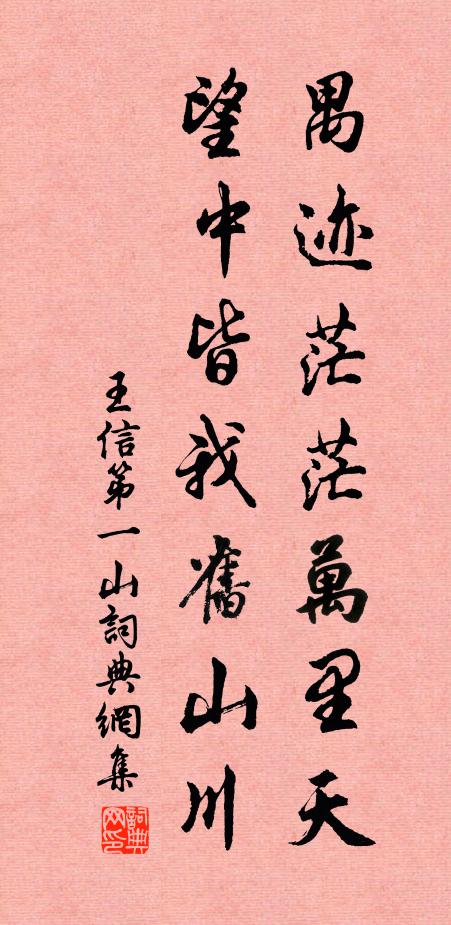 禺迹茫茫萬里天
望中皆我舊山川
王信第一山詞典網集
詞典網印